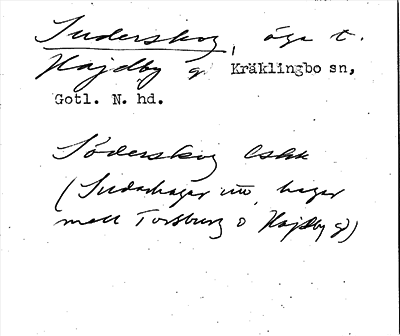 Suderskog, äga t.
Hajdby g Kräklingbo sn,
Gotl. N. hd.
Söderskog Eskk
(Sudarhagar utm, hagar
mell Torsburg o Hajdby g)